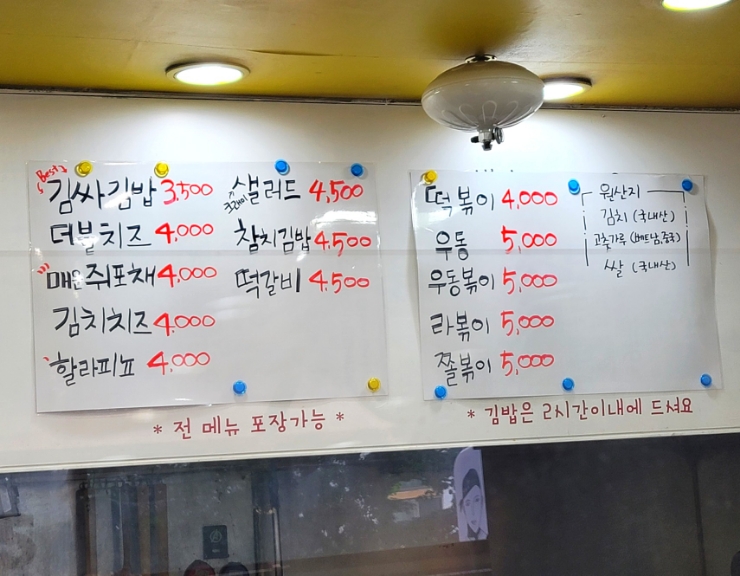 Best
김싸김밥 3,500
더블치즈 4,000
매운쥐포채 4,000
김치치즈 4,000
할라피뇨 4,000
샐러드 4,500
참치김밥 4,500
떡갈비 4,500
* 전 메뉴 포장가능 *
떡볶이 4,000
우동 5,000
우동볶이 5,000
라볶이 5,000
쫄볶이 5,000
원산지
김치 (국내산)
고춧가루 (베트남,중국)
쌀 (국내산)
* 김밥은 2시간이내에 드셔요